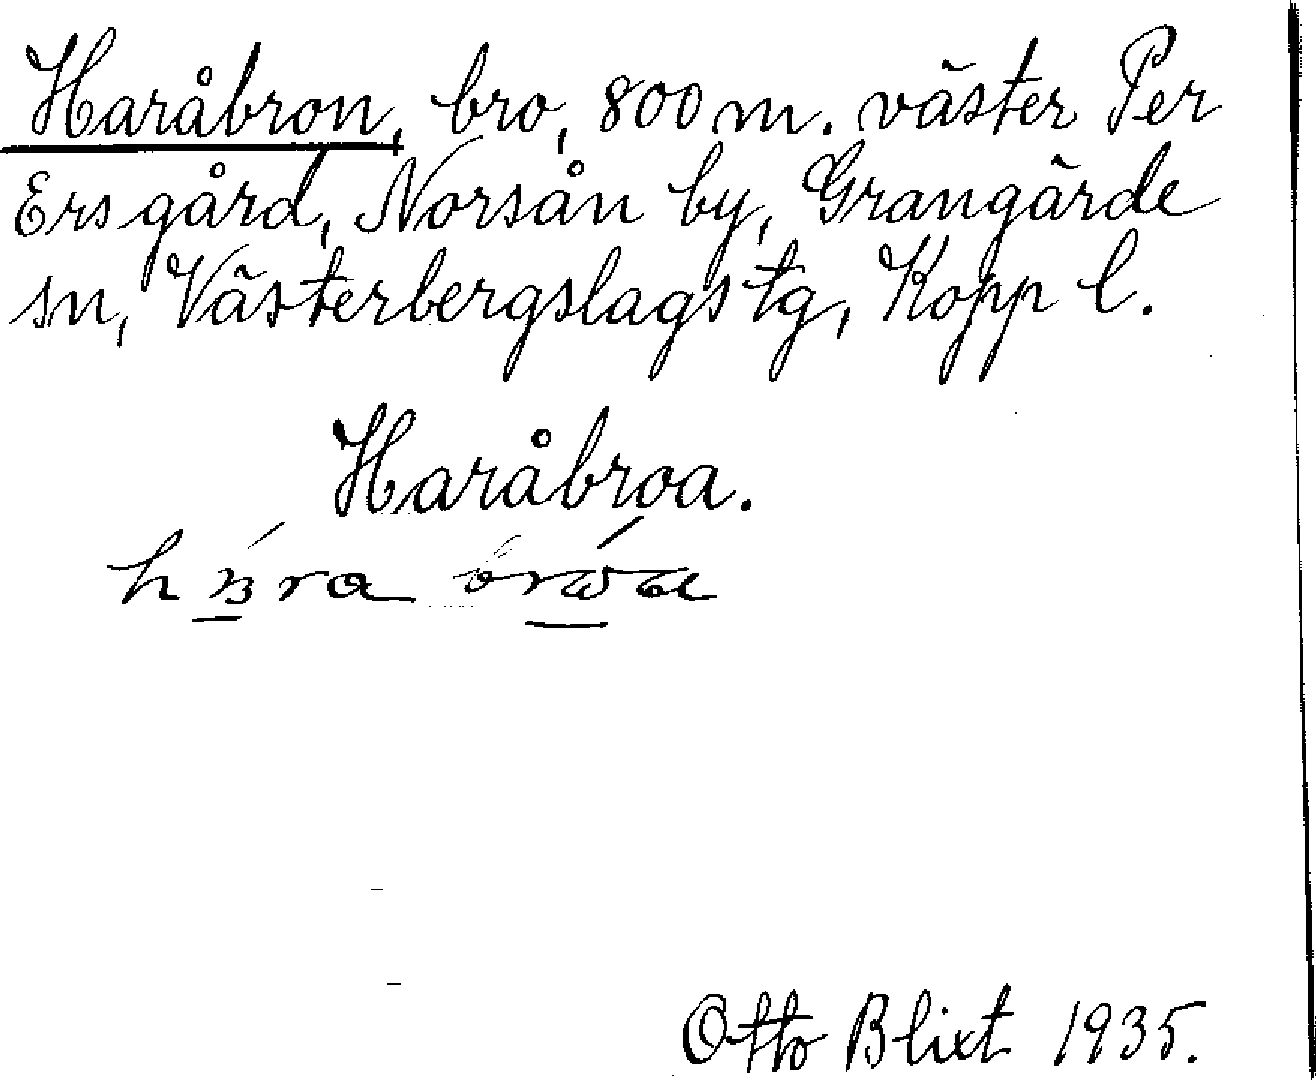 Haråbron, bro, 800 m. väster Per
Ersgård, Norsån by, Grangärde
sn, Västerbergslags tg, Kopp l.
Haråbroa.
Otto Blixt 1935.